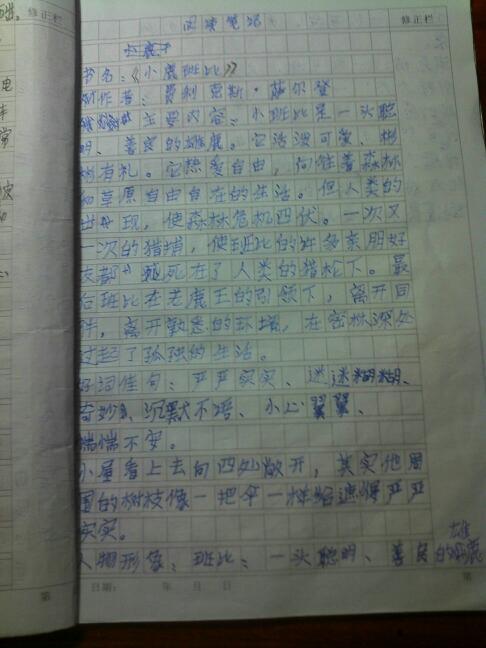 修正栏 阅读笔记 修正栏
书名：《小鹿班比》
作者：费利克斯·萨尔登
主要内容：小班比是一头聪
明、善良的雄鹿。它活泼可爱、彬
彬有礼。它热爱自由，向往着森林
和草原自由自在的生活。但人类的
出现，使森林危机四伏。一次又
一次的猎捕，使班比的许多亲朋好
友都死在了人类的猎枪下。最
后班比在老鹿王的引领下，离开同
伴，离开熟悉的环境，在密林深处
过起了孤独的生活。
好词佳句：严严实实、迷迷糊糊、
奇妙、沉默不语、小心翼翼、
惴惴不安。
小屋看上去向四处敞开，其实他周
围的树枝像一把伞一样给遮得严严
实实。
人物形象：班比：一头聪明、善良的雄鹿
第 日期： 年 月 日 第